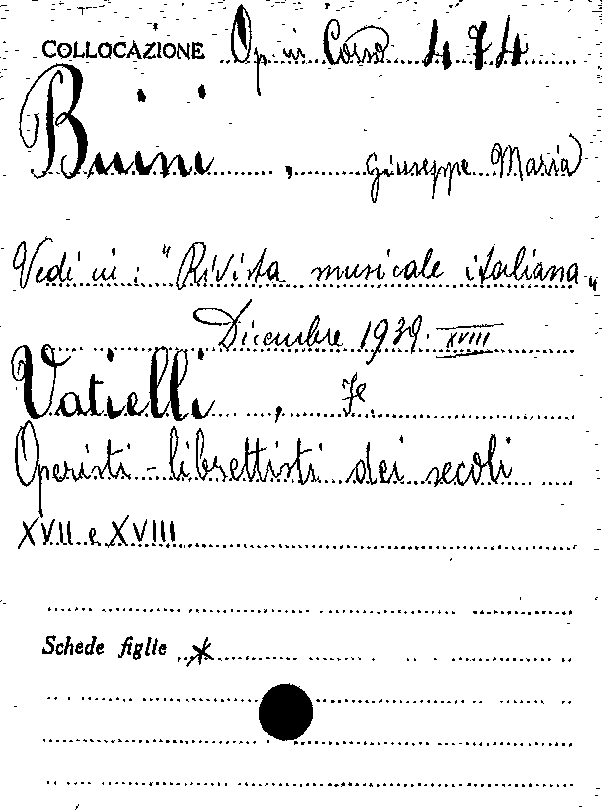 COLLOCAZIONE Op. in Corso 474
Buini, Giuseppe Maria
Vedi in: "Rivista musicale italiana„
Dicembre 1939. XVIII
Vatielli, F.
Operisti-librettisti dei secoli
XVII e XVIII
Schede figlie *